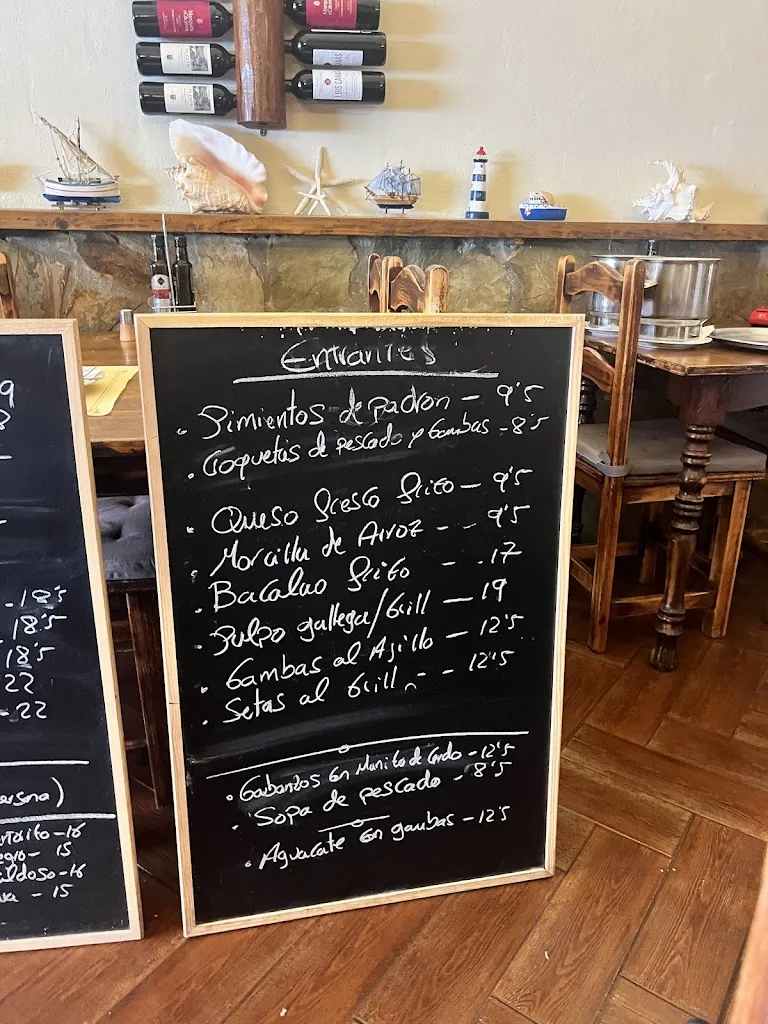 9
- 18'5
18'5
18'5
22
- 22
ersona)
- 16
egro - 15
aldoso - 16
va - 15
Entrantes
• Pimientos de padron - 9'5
• Croquetas de pescado y Gambas - 8'5
• Queso fresco frito - 9'5
• Morcilla de Arroz - - 9'5
• Bacalao frito - - 17
• Pulpo gallega/Grill - 19
• Gambas al Ajillo - 12'5
• Setas al Grill - - 12'5
• Garbanzos en Manita de Cerdo - 12'5
• Sopa de pescado - 8'5
• Aguacate en gambas - 12'5